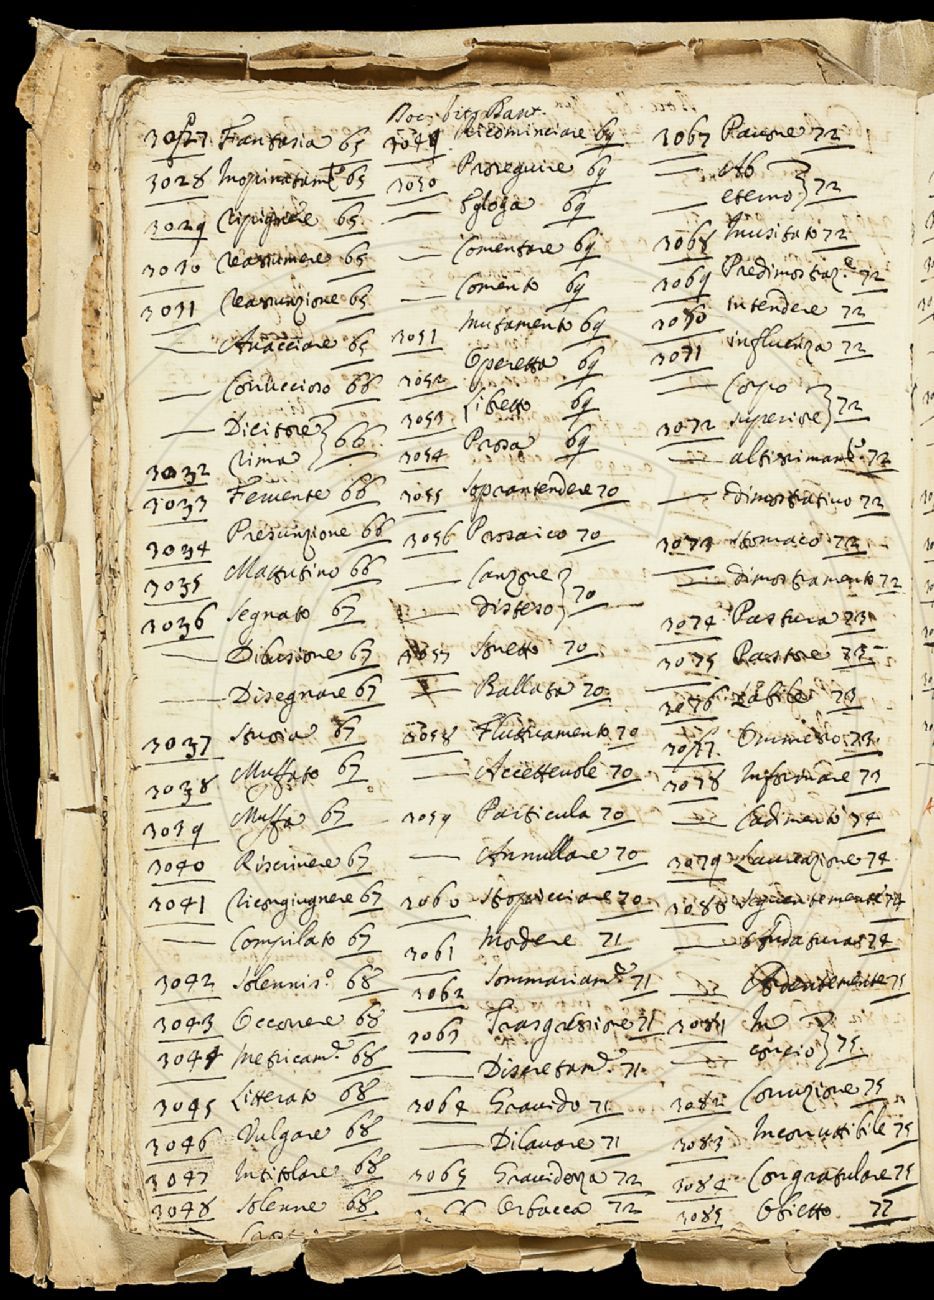 3027 Fantasia 65
3028 Inopinatam.te 65
3029 Ripignere 65
3030 Reassumere 65
3031 Reassunzione 65
— Auacciare 65
— Coruccioso 66
— Dicitore
3032 Rima } 66
3033 Feruente 66
3034 Presunzione 66
3035 Mattutino 66
3036 Segnato 67
— 67
— Disegnare 67
3037 Stusia 67
3038 Muffato 67
3039 Muffa 67
3040 Riscriuere 67
3041 Ricongiugnere 67
— Compilato 67
3042 Solennis.o 68
3043 Occorrere 68
3044 Metricam.te 68
3045 Litterato 68
3046 Vulgare 68
3047 Intitolare 68
3048 Solenne 68
3049 Ricominciare 69
3050 Proseguire 69
— Egloga 69
— Comentare 69
— Comento 69
3051 Mutamento 69
3052 Operetta 69
3053 Libetto 69
3054 Prosa 69
3055 Soprantendere 70
3056 Prosaico 70
— Canzone
— Disteso } 70
3057 Sonetto 70
— Ballata 70
3058 70
— Accetteuole 70
3059 Particula 70
— Annullare 70
3060 Stropicciare 70
3061 Mordere 71
3062 Sommariam.te 71
3063 Trasgressione 71
— Discretam.te 71
3064 Grauido 71
— Dilauare 71
3065 Grauidenza 72
Orbacca 72
3067 Pauone 72
— Ab
— eterno } 72
3068 Inusitato 72
3069 Predimostraz.e 72
3070 Intendere 72
3071 Influenza 72
— Corpo
3072 superiore } 72
— altissimam.te 72
— dimostratiuo 72
3073 stomaco 72
— dimostramento 72
3074 Pastura 73
3075 Pastore 73
3076 73
3077 73
3078 Informare 73
— Cadimento 74
3079 Laureazione 74
3080 Seguentemente 74
— 74
— 75
3081 In
— } 75
3082 Coruzione 75
3083 Incoruttibile 75
3084 Congratulare 75
3085 Obietto 77